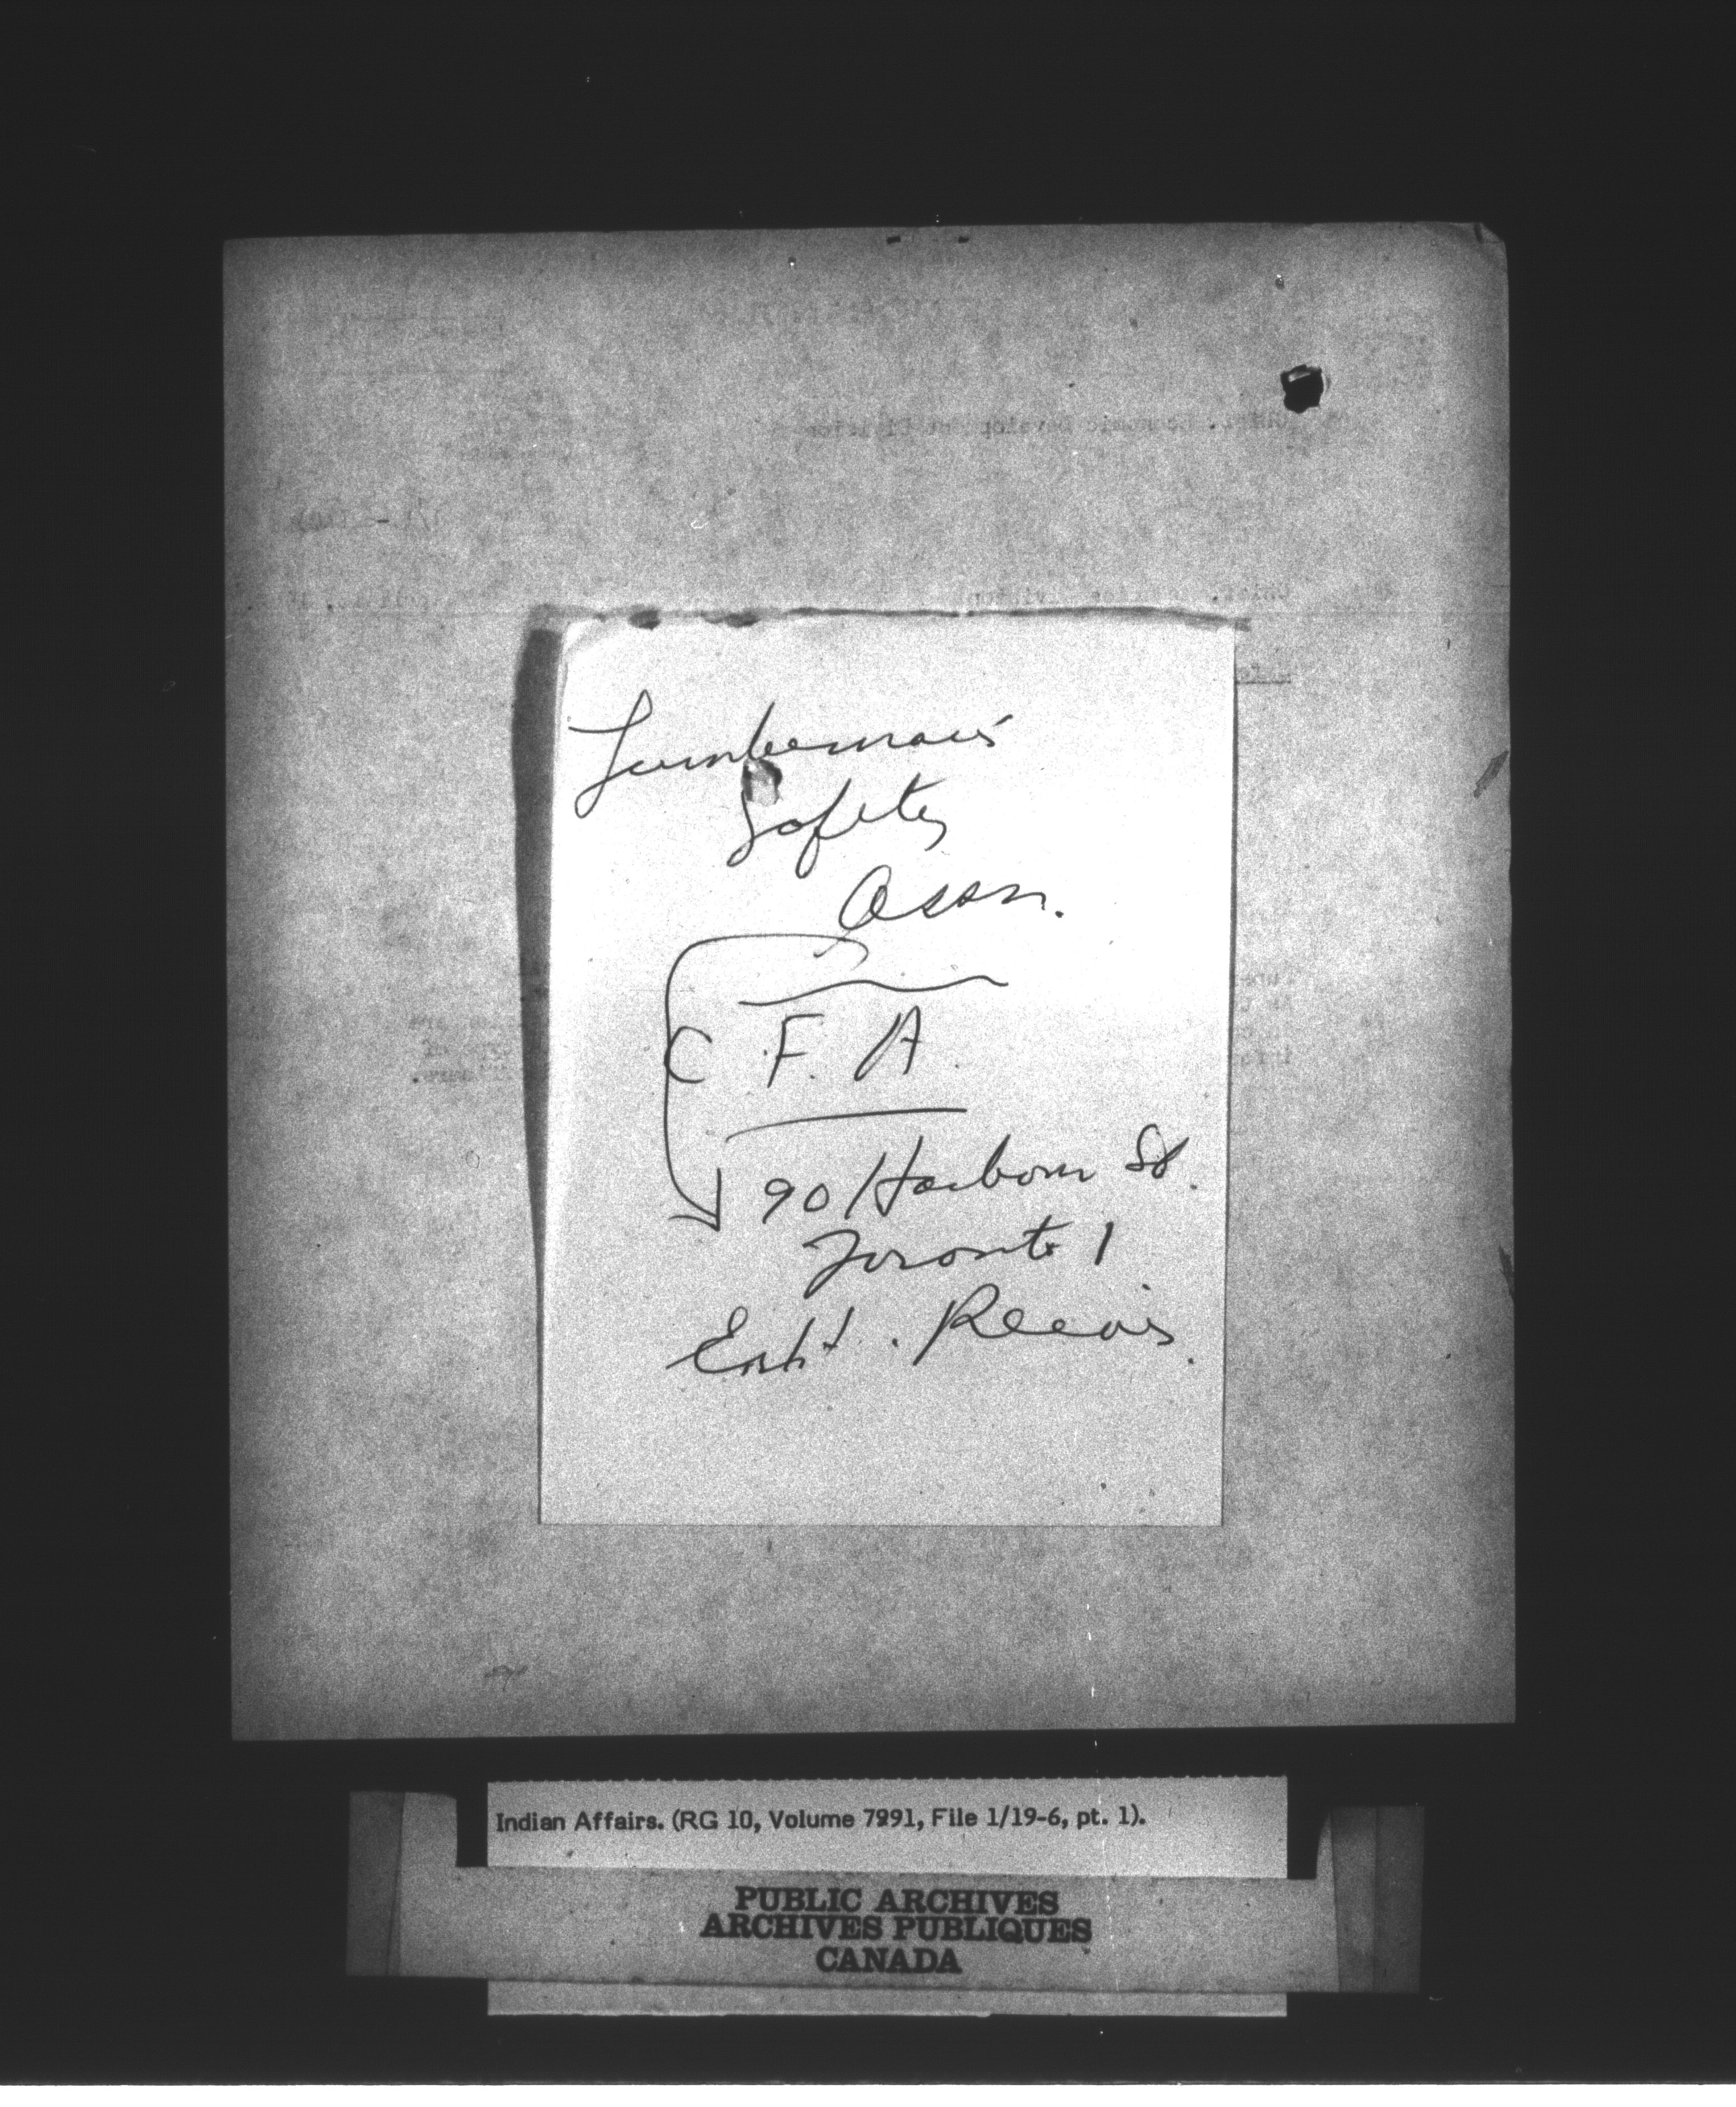 Lumberman's
Safety
Assn.
C F. A.
90 Harbour St.
Toronto 1
Reevis.
Indian Affairs. (RG 10, Volume 7991, File 1/19-6, pt. 1).
PUBLIC ARCHIVES
ARCHIVES PUBLIQUES
CANADA